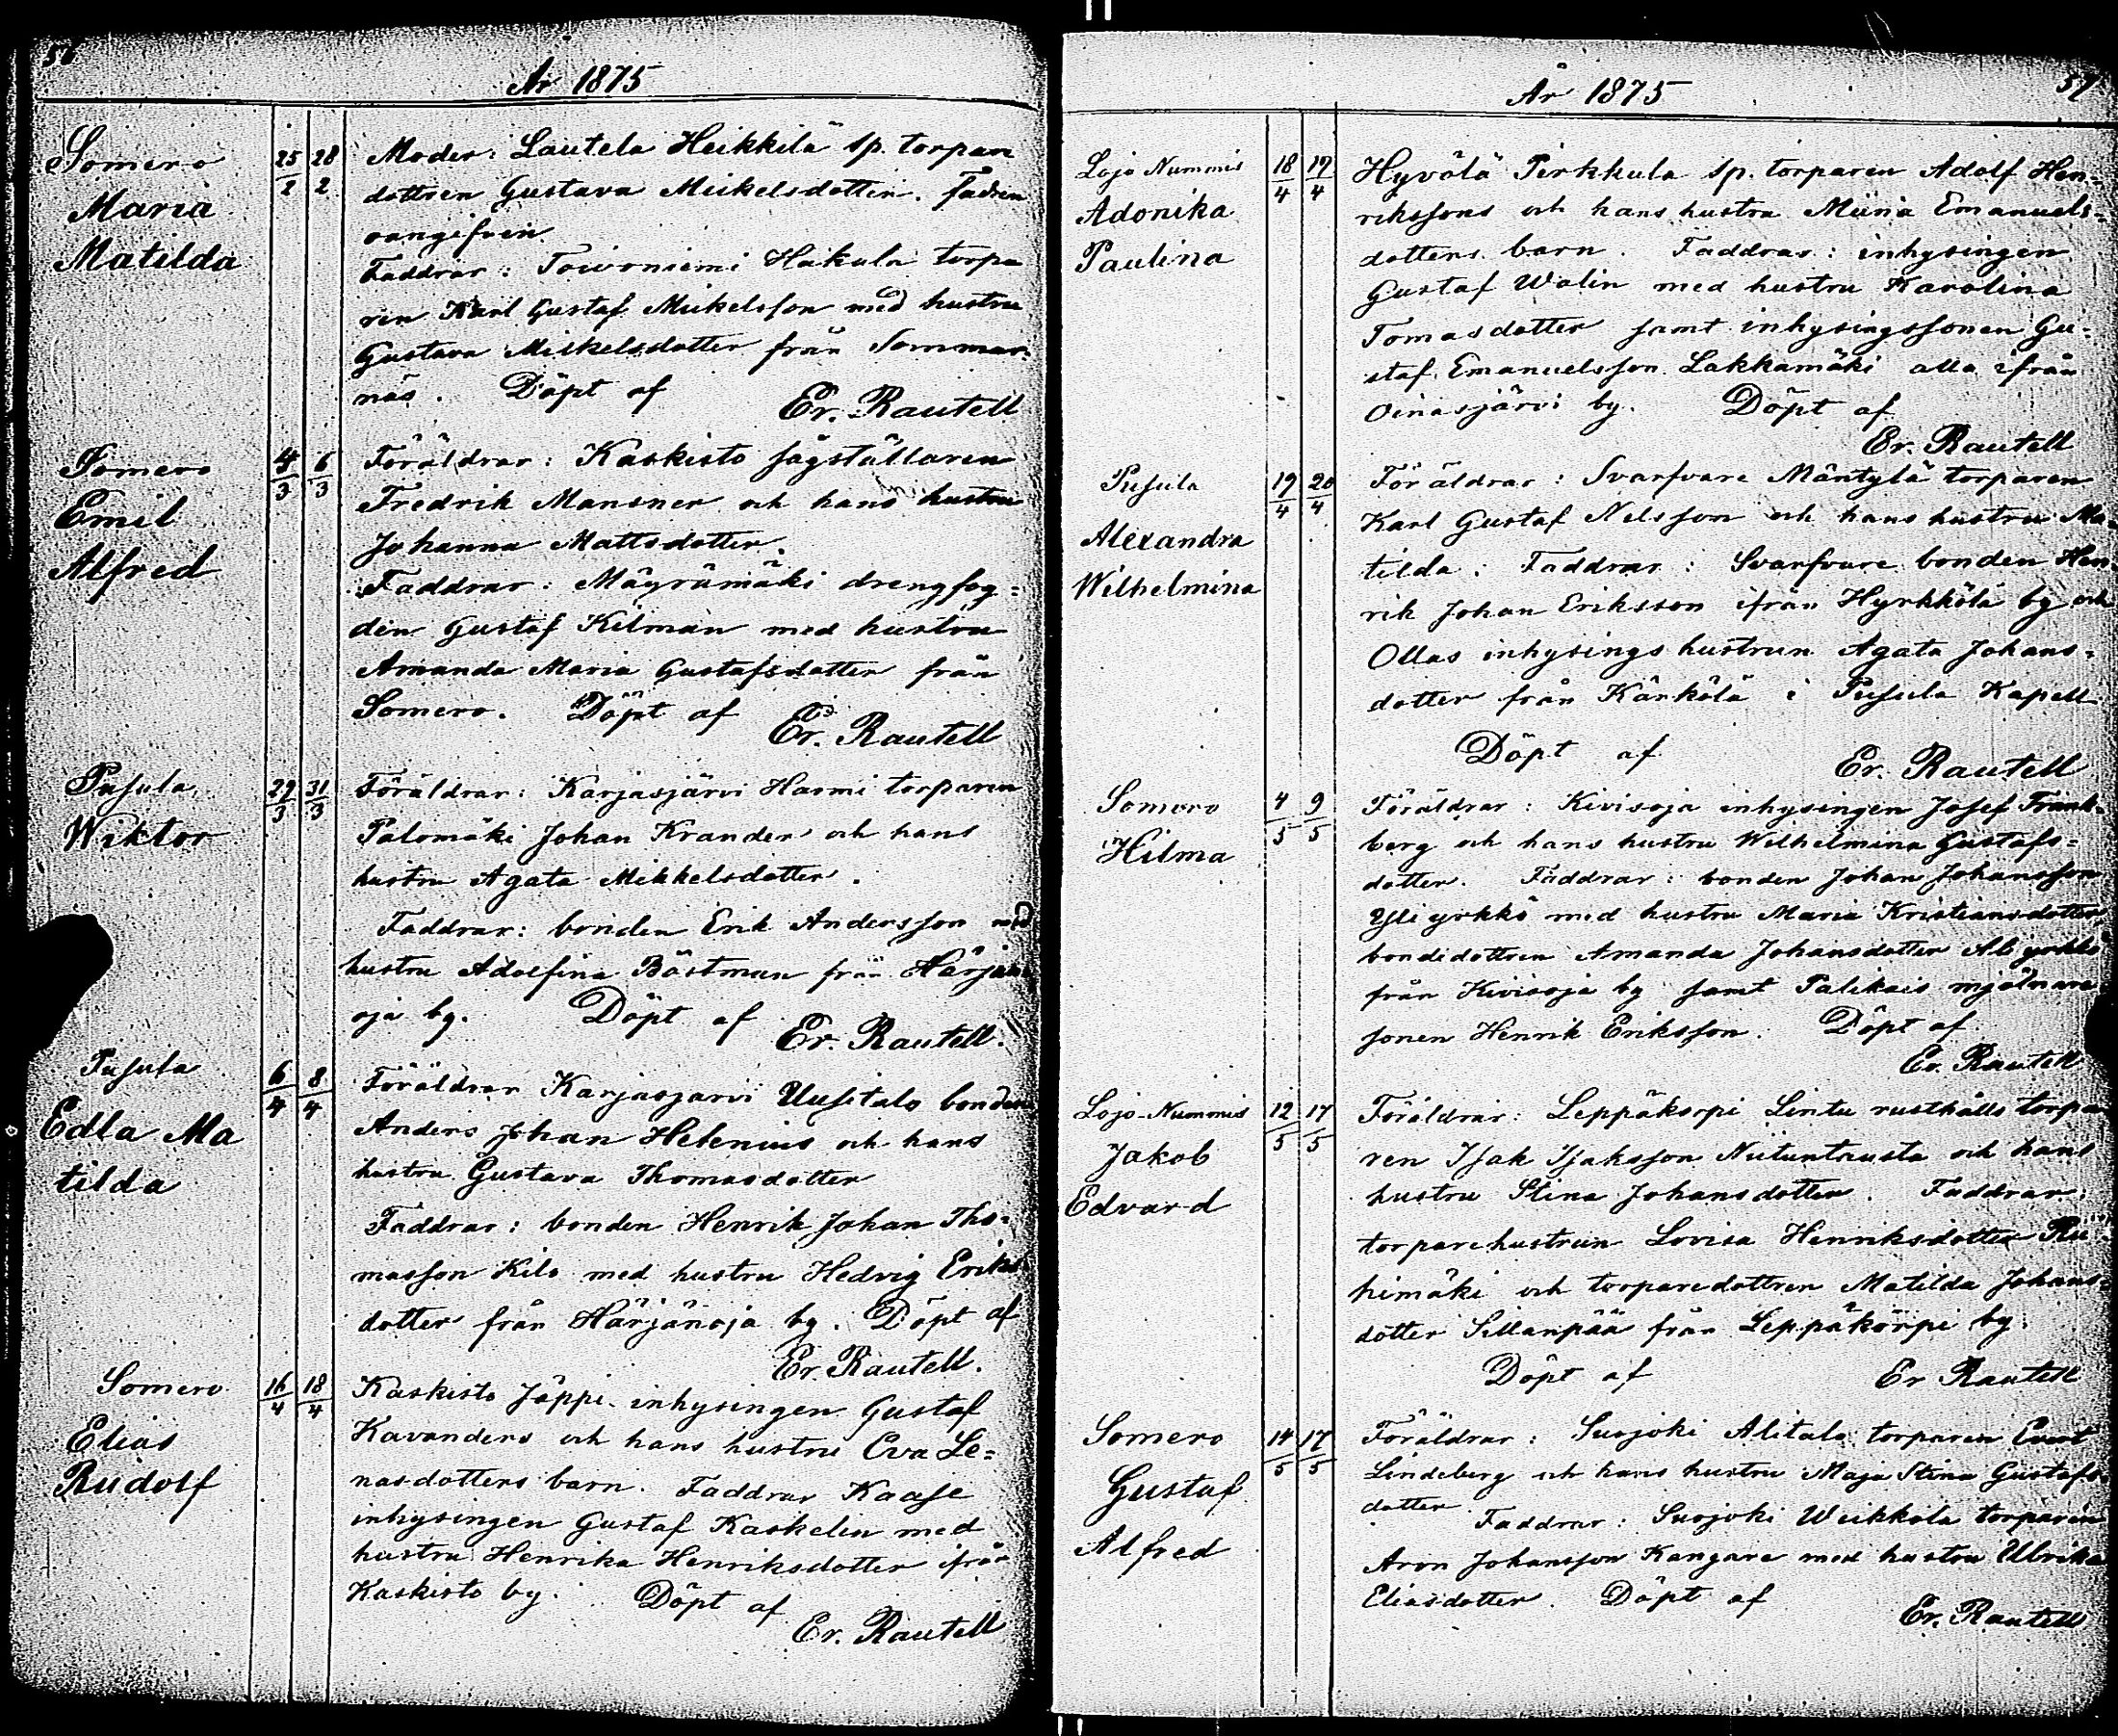 År 1875
Somero
Maria
Matilda
25/2 28/2
Moder: Lautela Heikkilä sp. torpare
dottren Gustava Mickelsdotter. Fadren
oangifven.
Faddrar: Toivoniemi Hakula torpa
ren Karl Gustaf Mickelsson med hustru
Gustava Mickelsdotter från Sommar-
näs. Döpt af
Er. Rautell
Somero
Emil
Alfred
4/3 6/3
Föräldrar: Kaskisto sågställaren
Fredrik Mansner och hans hustru
Johanna Mattsdotter.
Faddrar: Mäyrämäki drengfog=
den Gustaf Kilman med hustru
Amanda Maria Gustafsdotter från
Somero. Döpt af
Er. Rautell
Pusula
Wiktor
29/3 31/3
Föräldrar: Karjasjärvi Harmi torparen
Palomäki Johan Krander och hans
hustru Agata Mikkelsdotter.
Faddrar: bonden Erik Andersson med
hustru Adolfina Böstman från Härjän
oja by. Döpt af
Er. Rautell.
Pusula
Edla Ma
tilda
6/4 8/4
Föräldrar Karjasjarvi Uusitalo bonden
Anders Johan Helenius och hans
hustru Gustava Thomasdotter
Faddrar: bonden Henrik Johan Tho=
masson Kilo med hustru Hedvig Eriks
dotter från Härjänoja by. Döpt af
Er. Rautell.
Somero
Elias
Rudolf
16/4 18/4
Kaskisto Jäppi inhysingen Gustaf
Kavanders och hans hustru Eva Le=
nasdotters barn. Faddrar Kaase
inhysingen Gustaf Kaskelin med
hustru Henrika Henriksdotter ifrån
Kaskisto by. Döpt af
Er. Rautell
År 1875
57
Lojo Nummis
Adonika
Paulina
18/4 19/4
Hyvölä Pirkkula sp. torparen Adolf Hen=
rikssons och hans hustru Miina Emanuels=
dotters barn. Faddrar: inhysingen
Gustaf Walin med hustru Karolina
Tomasdotter samt inhysingssonen Gu=
staf Emanuelsson Lakkamäki alla ifrån
Oinasjärvi by. Döpt af
Er. Rautell
Pusula
Alexandra
Wilhelmina
19/4 20/4
Föräldrar: Svarfvare Mäntylä torparen
Karl Gustaf Nelsson och hans hustru Ma=
tilda. Faddrar: Svarfvare bonden Hen=
rik Johan Eriksson ifrån Hyrkkölä by och
Ollas inhysings hustrun Agata Johans=
dotter från Kärkölä i Pusula Kapell
Döpt af
Er. Rautell
Somero
Hilma
4/5 9/5
Föräldrar: Kivisoja inhysingen Josef Frank=
berg och hans hustru Wilhelmina Gustafs=
dotter. Faddrar: bonden Johan Johansson
Yliyrkkö med hustru Maria Kristiansdotter
bondedottren Amanda Johansdotter Aliyrkkö
från Kivisoja by samt Palikais mjölnare
sonen Henrik Eriksson. Döpt af
Er. Rautell
Lojo-Nummis
Jakob
Edvard
12/5 17/5
Föräldrar: Leppäkorpi Lintu rusthålls torpa
ren Isak Isaksson Niituntausta och hans
hustru Stina Johansdotter. Faddrar:
torparehustrun Lovisa Henriksdotter Rii
himäki och torparedottren Matilda Johans=
dotter Sillanpää från Leppäkorpi by.
Döpt af Er Rautell
Somero
Gustaf
Alfred
14/5 17/5
Föräldrar: Suojoki Alitalo torparen Evert
Lindeberg och hans hustru Maja Stina Gustafs=
dotter Faddrar: Suojoki Weikkola torparen
Aron Johansson Kangare med hustru Ulrika
Eliasdotter. Döpt af
Er. Rautell